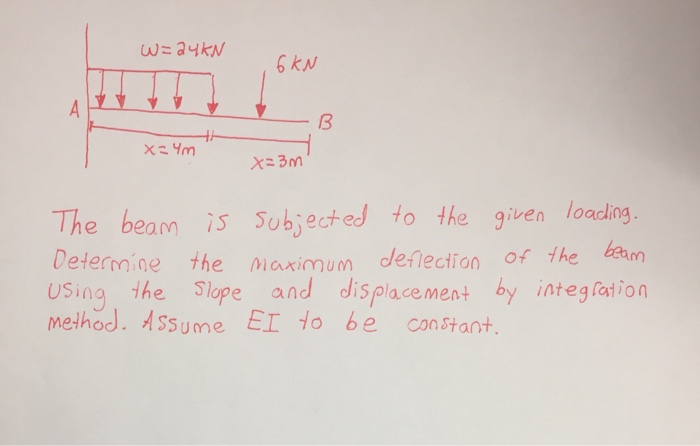 w=24kN
6 kN
A
B
x=4m
x=3m
The beam is subjected to the given loading.
Determine the maximum deflection of the beam
using the slope and displacement by integration
method. Assume EI to be constant.